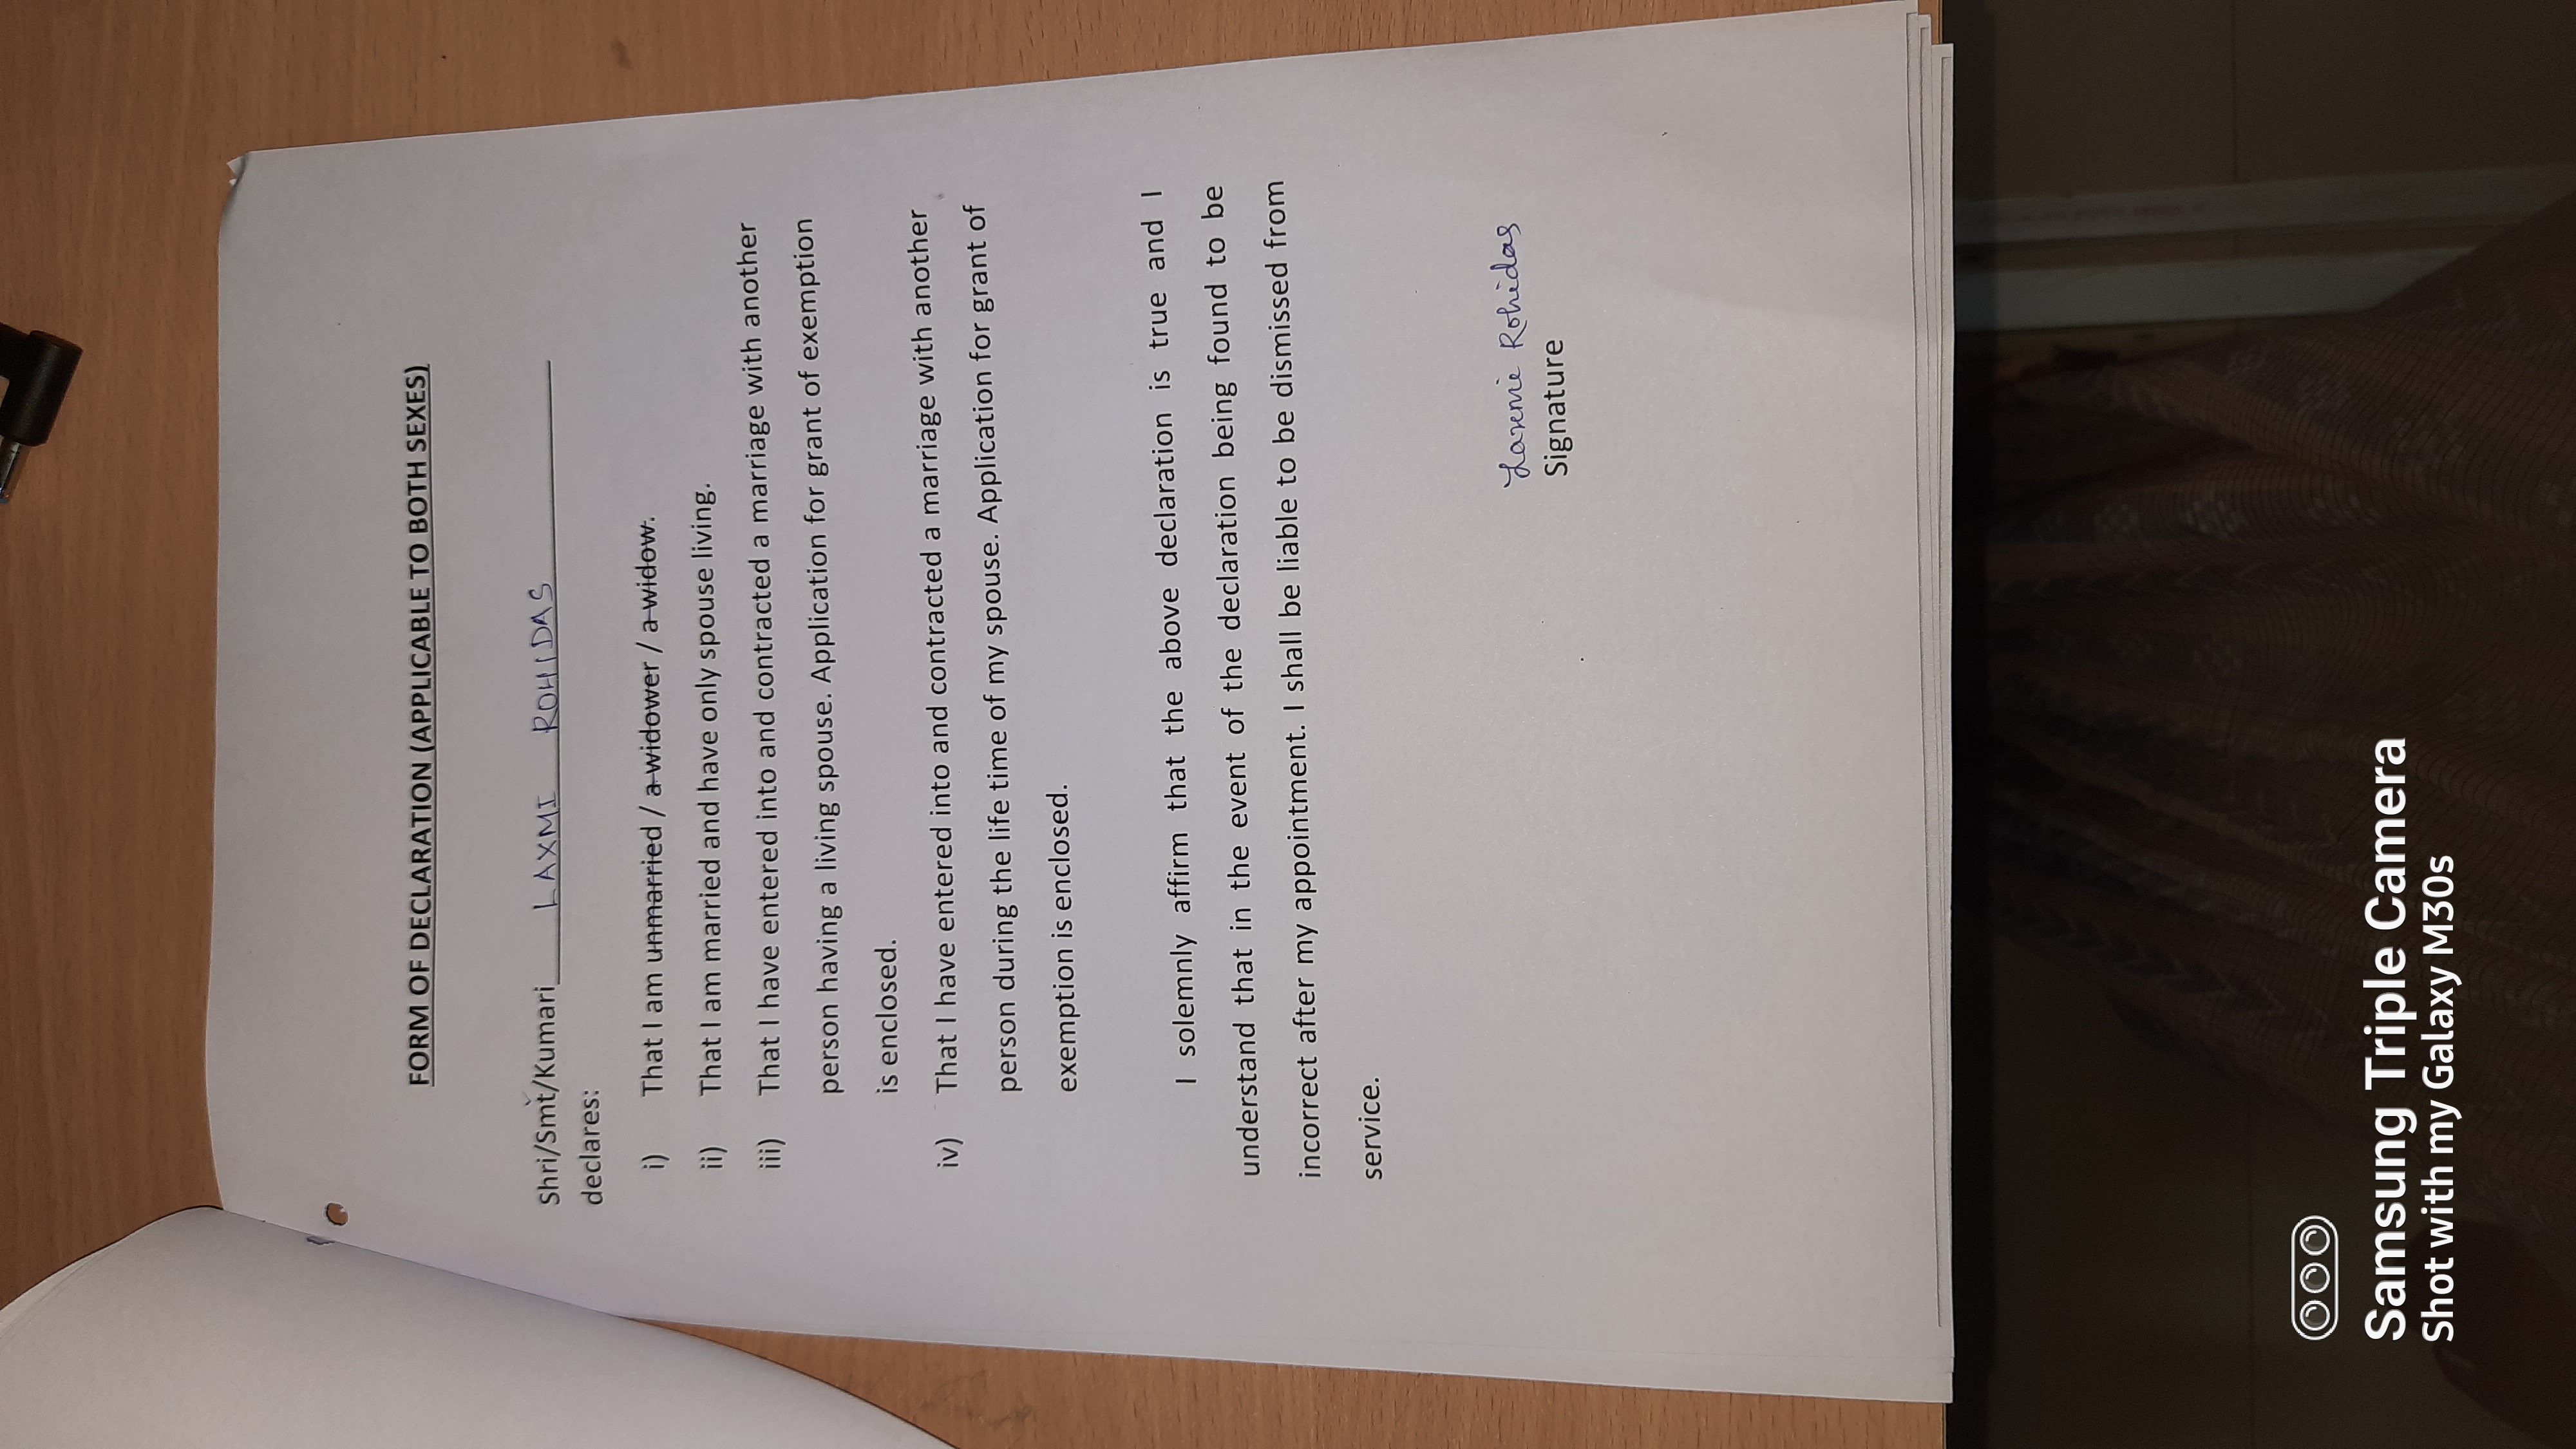 FORM OF DECLARATION (APPLICABLE TO BOTH SEXES)
Shri/Smt/Kumari LAXMI ROHIDAS
declares:
i) That I am unmarried / a widower / a widow.
ii) That I am married and have only spouse living.
iii) That I have entered into and contracted a marriage with another
person having a living spouse. Application for grant of exemption
is enclosed.
iv) That I have entered into and contracted a marriage with another
person during the life time of my spouse. Application for grant of
exemption is enclosed.
I solemnly affirm that the above declaration is true and I
understand that in the event of the declaration being found to be
incorrect after my appointment. I shall be liable to be dismissed from
service.
Laxmi Rohidas
Signature
Samsung Triple Camera
Shot with my Galaxy M30s